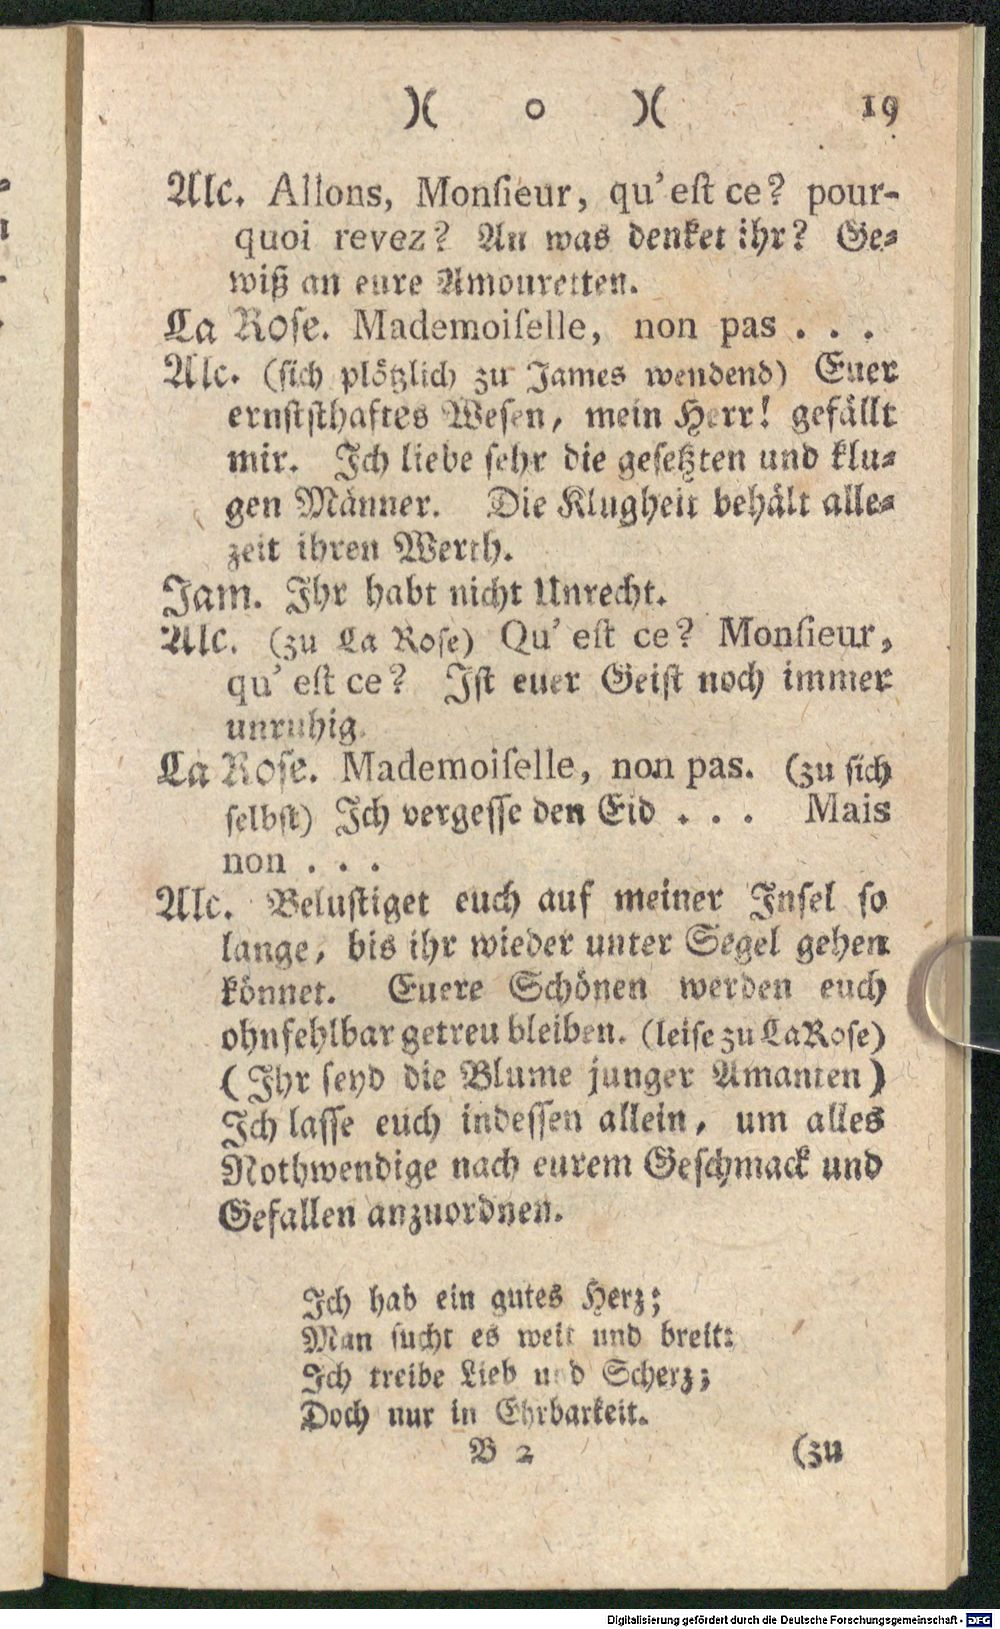 )( o )( 19
Alc. Allons, Monſieur, qu'eſt ce? pour-
quoi revez? An was denket ihr? Ge-
wiß an eure Amouretten.
La Roſe. Mademoiſelle, non pas . . .
Alc. (ſich plötzlich zu James wendend) Euer
ernſtſthaftes Weſen, mein Herr! gefällt
mir. Ich liebe ſehr die geſetzten und klu-
gen Männer. Die Klugheit behält alle-
zeit ihren Werth.
Jam. Ihr habt nicht Unrecht.
Alc. (zu La Roſe) Qu' eſt ce? Monſieur,
qu' eſt ce? Iſt euer Geiſt noch immer
unruhig.
La Roſe. Mademoiſelle, non pas. (zu ſich
ſelbſt) Ich vergeſſe den Eid . . . Mais
non . . .
Alc. Beluſtiget euch auf meiner Inſel ſo
lange, bis ihr wieder unter Segel gehen
könnet. Euere Schönen werden euch
ohnfehlbar getreu bleiben. (leiſe zu La Roſe)
(Ihr ſeyd die Blume junger Amanten)
Ich laſſe euch indeſſen allein, um alles
Nothwendige nach eurem Geſchmack und
Gefallen anzuordnen.
Ich hab ein gutes Herz;
Man ſucht es weit und breit:
Ich treibe Lieb und Scherz;
Doch nur in Ehrbarkeit.
B 2 (zu
Digitalisierung gefördert durch die Deutsche Forschungsgemeinschaft - DFG